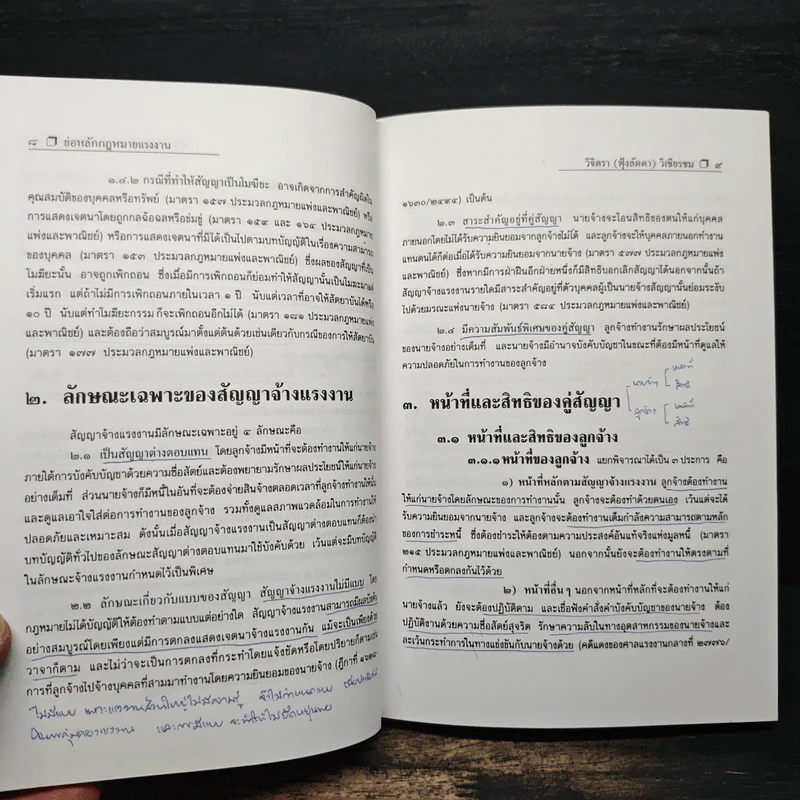 ๘ ❐ ย่อหลักกฎหมายแรงงาน
๑.๔.๒ กรณีที่ทำให้สัญญาเป็นโมฆียะ อาจเกิดจากการสำคัญผิดใน
คุณสมบัติของบุคคลหรือทรัพย์ (มาตรา ๑๕๗ ประมวลกฎหมายแพ่งและพาณิชย์) หรือ
การแสดงเจตนาโดยถูกกลฉ้อฉลหรือข่มขู่ (มาตรา ๑๕๙ และ ๑๖๔ ประมวลกฎหมาย
แพ่งและพาณิชย์) หรือการแสดงเจตนาที่มิได้เป็นไปตามบทบัญญัติในเรื่องความสามารถ
ของบุคคล (มาตรา ๑๕๓ ประมวลกฎหมายแพ่งและพาณิชย์) ซึ่งผลของสัญญาที่เป็น
โมฆียะนั้น อาจถูกเพิกถอน ซึ่งเมื่อมีการเพิกถอนก็ย่อมทำให้สัญญานั้นเป็นโมฆะมาแต่
เริ่มแรก แต่ถ้าไม่มีการเพิกถอนภายในเวลา ๑ ปี นับแต่เวลาที่อาจให้สัตยาบันได้หรือ
๑๐ ปี นับแต่ทำโมฆียะกรรม ก็จะเพิกถอนอีกไม่ได้ (มาตรา ๑๘๑ ประมวลกฎหมายแพ่ง
และพาณิชย์) และต้องถือว่าสมบูรณ์มาตั้งแต่ต้นด้วยเช่นเดียวกับกรณีของการให้สัตยาบัน
(มาตรา ๑๗๗ ประมวลกฎหมายแพ่งและพาณิชย์)
๒. ลักษณะเฉพาะของสัญญาจ้างแรงงาน
สัญญาจ้างแรงงานมีลักษณะเฉพาะอยู่ ๔ ลักษณะคือ
๒.๑ เป็นสัญญาต่างตอบแทน โดยลูกจ้างมีหน้าที่จะต้องทำงานให้แก่นายจ้าง
ภายใต้การบังคับบัญชาด้วยความซื่อสัตย์และต้องพยายามรักษาผลประโยชน์ให้แก่นายจ้าง
อย่างเต็มที่ ส่วนนายจ้างก็มีหนี้ในอันที่จะต้องจ่ายสินจ้างตลอดเวลาที่ลูกจ้างทำงานให้นั้น
และดูแลเอาใจใส่ต่อการทำงานของลูกจ้าง รวมทั้งดูแลสภาพแวดล้อมในการทำงานให้
ปลอดภัยและเหมาะสม ดังนั้นเมื่อสัญญาจ้างแรงงานเป็นสัญญาต่างตอบแทนก็ต้องนำ
บทบัญญัติทั่วไปของลักษณะสัญญาต่างตอบแทนมาใช้บังคับด้วย เว้นแต่จะมีบทบัญญัติ
ในลักษณะจ้างแรงงานกำหนดไว้เป็นพิเศษ
๒.๒ ลักษณะเกี่ยวกับแบบของสัญญา สัญญาจ้างแรงงานไม่มีแบบ โดย
กฎหมายไม่ได้บัญญัติให้ต้องทำตามแบบแต่อย่างใด สัญญาจ้างแรงงานสามารถมีผลบังคับ
อย่างสมบูรณ์โดยเพียงแต่มีการตกลงแสดงเจตนาจ้างแรงงานกัน แม้จะเป็นเพียงด้วย
วาจาก็ตาม และไม่ว่าจะเป็นการตกลงที่กระทำโดยแจ้งชัดหรือโดยปริยายก็ตามเช่น
การที่ลูกจ้างไปจ้างบุคคลที่สามมาทำงานโดยความยินยอมของนายจ้าง (ฎีกาที่ ๑๖๒๘-
วิจิตรา (ฟุ้งลัดดา) วิเชียรชม ❐ ๙
๑๖๓๐/๒๔๙๔) เป็นต้น
๒.๓ สาระสำคัญอยู่ที่คู่สัญญา นายจ้างจะโอนสิทธิของตนให้แก่บุคคล
ภายนอกโดยไม่ได้รับความยินยอมจากลูกจ้างไม่ได้ และลูกจ้างจะให้บุคคลภายนอกทำงาน
แทนตนได้ก็ต่อเมื่อได้รับความยินยอมจากนายจ้าง (มาตรา ๕๗๗ ประมวลกฎหมายแพ่ง
และพาณิชย์) ซึ่งหากมีการฝ่าฝืนอีกฝ่ายหนึ่งก็มีสิทธิบอกเลิกสัญญาได้นอกจากนั้นถ้า
สัญญาจ้างแรงงานรายใดมีสาระสำคัญอยู่ที่ตัวบุคคลผู้เป็นนายจ้างสัญญานั้นย่อมระงับ
ไปด้วยมรณะแห่งนายจ้าง (มาตรา ๕๘๔ ประมวลกฎหมายแพ่งและพาณิชย์)
๒.๔ มีความสัมพันธ์พิเศษของคู่สัญญา ลูกจ้างทำงานรักษาผลประโยชน์
ของนายจ้างอย่างเต็มที่ และนายจ้างมีอำนาจบังคับบัญชาในขณะที่ต้องมีหน้าที่ดูแลให้
ความปลอดภัยในการทำงานของลูกจ้าง
นายจ้าง หน้าที่ สิทธิ
ลูกจ้าง หน้าที่ สิทธิ
๓. หน้าที่และสิทธิของคู่สัญญา
๓.๑ หน้าที่และสิทธิของลูกจ้าง
๓.๑.๑ หน้าที่ของลูกจ้าง แยกพิจารณาได้เป็น ๓ ประการ คือ
๑) หน้าที่หลักตามสัญญาจ้างแรงงาน ลูกจ้างต้องทำงาน
ให้แก่นายจ้างโดยลักษณะของการทำงานนั้น ลูกจ้างจะต้องทำด้วยตนเอง เว้นแต่จะได้
รับความยินยอมจากนายจ้าง และลูกจ้างจะต้องทำงานเต็มกำลังความสามารถตามหลัก
ของการชำระหนี้ ซึ่งต้องชำระให้ต้องตามความประสงค์อันแท้จริงแห่งมูลหนี้ (มาตรา
๒๑๕ ประมวลกฎหมายแพ่งและพาณิชย์) นอกจากนั้นยังจะต้องทำงานให้ตรงตามที่
กำหนดหรือตกลงกันไว้ด้วย
๒) หน้าที่อื่น ๆ นอกจากหน้าที่หลักที่จะต้องทำงานให้แก่
นายจ้างแล้ว ยังจะต้องปฏิบัติตาม และเชื่อฟังคำสั่งคำบังคับบัญชาของนายจ้าง ต้อง
ปฏิบัติงานด้วยความซื่อสัตย์สุจริต รักษาความลับในทางอุตสาหกรรมของนายจ้างและ
ละเว้นกระทำการในทางแข่งขันกับนายจ้างด้วย (คดีแดงของศาลแรงงานกลางที่ ๒๗๗๖/